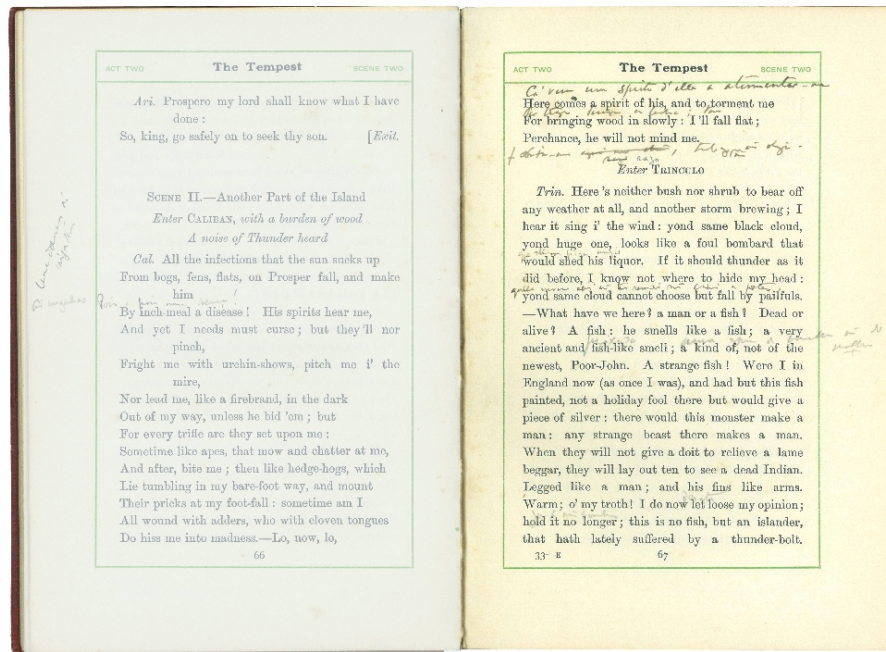 ACT TWO The Tempest SCENE TWO
Ari. Prospero my lord shall know what I have
done :
So, king, go safely on to seek thy son. [Exit.
SCENE II.—Another Part of the Island
Enter CALIBAN, with a burden of wood
A noise of Thunder heard
Cal. All the infections that the sun sucks up
From bogs, fens, flats, on Prosper fall, and make
him
By inch-meal a disease ! His spirits hear me,
And yet I needs must curse ; but they'll nor
pinch,
Fright me with urchin-shows, pitch me i' the
mire,
Nor lead me, like a firebrand, in the dark
Out of my way, unless he bid 'em ; but
For every trifle are they set upon me :
Sometime like apes, that mow and chatter at me,
And after, bite me ; then like hedge-hogs, which
Lie tumbling in my bare-foot way, and mount
Their pricks at my foot-fall : sometime am I
All wound with adders, who with cloven tongues
Do hiss me into madness.—Lo, now, lo,
66
ACT TWO The Tempest SCENE TWO
Here comes a spirit of his, and to torment me
For bringing wood in slowly : I'll fall flat ;
Perchance, he will not mind me.
Enter TRINCULO
Trin. Here's neither bush nor shrub to bear off
any weather at all, and another storm brewing ; I
hear it sing i' the wind : yond same black cloud,
yond huge one, looks like a foul bombard that
would shed his liquor. If it should thunder as it
did before, I know not where to hide my head :
yond same cloud cannot choose but fall by pailfuls.
—What have we here ? a man or a fish ? Dead or
alive ? A fish : he smells like a fish ; a very
ancient and fish-like smell ; a kind of, not of the
newest, Poor-John. A strange fish ! Were I in
England now (as once I was), and had but this fish
painted, not a holiday fool there but would give a
piece of silver : there would this monster make a
man : any strange beast there makes a man.
When they will not give a doit to relieve a lame
beggar, they will lay out ten to see a dead Indian.
Legged like a man ; and his fins like arms.
Warm ; o' my troth ! I do now let loose my opinion ;
hold it no longer ; this is no fish, but an islander,
that hath lately suffered by a thunder-bolt.
33- E 67